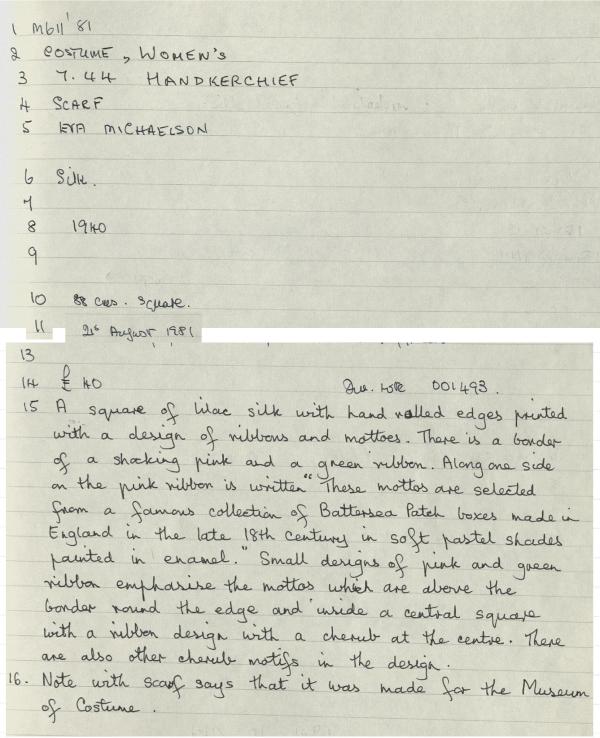 1 M611'81
2 COSTUME, WOMEN'S
3 7.44 HANDKERCHIEF
4 SCARF
5 EVA MICHAELSON
6 Silk.
7
8 1940
9
10 88 cms. square.
11 21st August 1981
13
14 £ 40 001493.
15 A square of lilac silk with hand rolled edges printed
with a design of ribbons and mottoes. There is a border
of a shocking pink and a green ribbon. Along one side
on the pink ribbon is written "These mottos are selected
from a famous collection of Battersea Patch boxes made in
England in the late 18th century in soft pastel shades
painted in enamel." Small designs of pink and green
ribbon emphasise the mottos which are above the
border round the edge and inside a central square
with a ribbon design with a cherub at the centre. There
are also other cherub motifs in the design.
16. Note with scarf says that it was made for the Museum
of Costume.